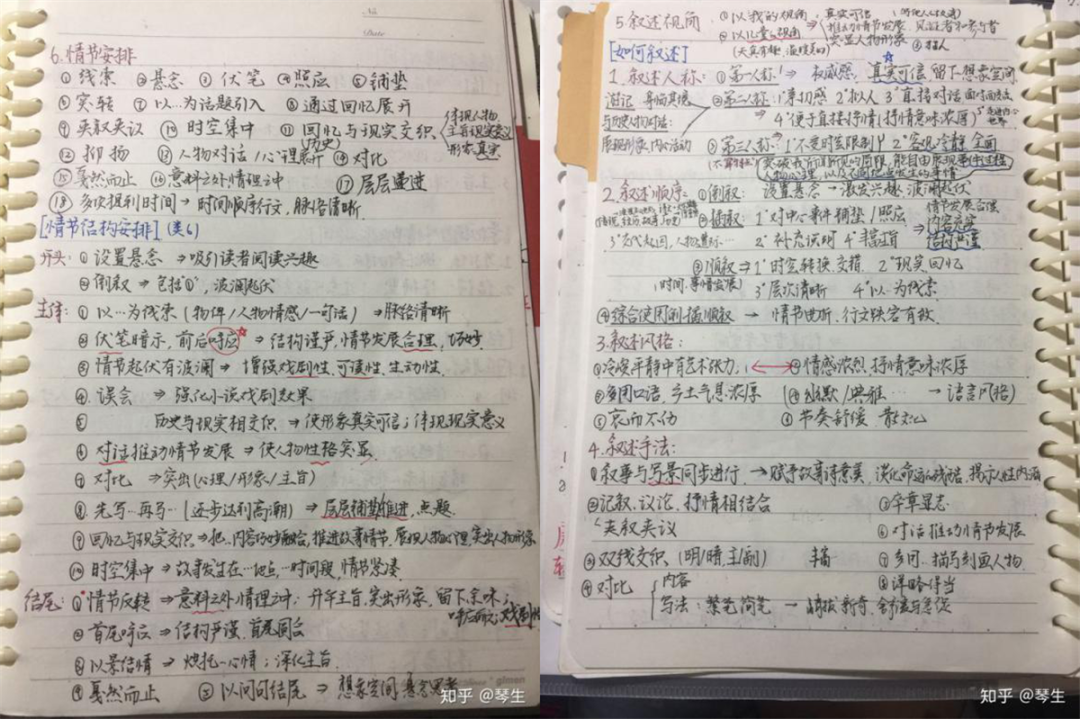 6.情节安排
①线索 ②悬念 ③伏笔 ④照应 ⑤铺垫
⑥突转 ⑦以…为话题引入 ⑧通过回忆展开
⑨夹叙夹议 ⑩时空集中 ⑪回忆与现实交织
(历史)
(体现人物
主旨现实意义
形象真实
⑫抑扬 ⑬人物对话/心理 ⑭对比
⑮戛然而止 ⑯意料之外情理之中 ⑰层层递进
⑱多次提到时间→时间顺序行文,脉络清晰
[情节结构安排](类6)
开头:①设置悬念⇒吸引读者阅读兴趣
②倒叙⇒包括①,波澜起伏
主体:①以…为线索(物件/人物情感/一句话)⇒脉络清晰
②伏笔暗示,前后呼应⇒结构谨严,情节发展合理,巧妙
③情节起伏有波澜⇒增强戏剧性,可读性,生动性
④误会⇒强化小说戏剧效果
⑤历史与现实相交织⇒使形象真实可信;体现现实意义
⑥对话推动情节发展⇒使人物性格突显
⑦对比⇒突出(心理/形象/主旨)
⑧先写…再写…(逐步达到高潮)⇒层层铺垫推进,点题
⑨回忆与现实交织⇒把…内容巧妙融合,推进故事情节,展现人物心理,突出人物形象
⑩时空集中⇒故事发生在…地点,一时间段,情节紧凑
结尾:①情节反转⇒意料之外情理之中;升华主旨,突出形象,留下余味;
呼应前文;戏剧性
②首尾呼应⇒结构严谨,首尾圆合
③以景结情⇒烘托…心情;深化主旨
④戛然而止 ⑤以问句结尾⇒想象空间,悬念思考
知乎 @琴生
5.叙述视角 ①以我的视角→真实可信
②以儿童视角 推动情节发展,见证者和参与者
突显人物形象
[如何叙述]
1.叙述人称:①第一人称⇒权威感,真实可信,留下想象空间
游记 身临其境 ②第二人称⇒1°亲切感 2°拟人 3°直接对话
与历史人物对话: 4°便于直接抒情(抒情意味浓厚)
展现形象,内心活动 ③第三人称:1°不受时空限制 2°客观冷静 全面
2.叙述顺序:①倒叙:设置悬念→激发兴趣,波澜起伏
②插叙:1°对中心事件铺垫/照应 情节发展合理
2°补充说明 4°丰富主旨 内容充实
结构严谨
③顺叙⇒1°时空转换,交错 2°现实回忆
(时间,事情发展) 3°层次清晰 4°以…为线索
④综合使用倒插顺叙→情节曲折,行文跌宕有致
3.叙述风格:
①冷峻平静中有艺术张力 ②情感浓烈,抒情意味浓厚
③多用口语,乡土气息浓厚 (④幽默/典雅…→语言风格)
⑤哀而不伤 ⑥节奏舒缓 散文化
4.叙述手法:
①叙事与写景同步进行→赋予故事诗意美,淡化命运的残酷,揭示人性内涵
②记叙、议论,抒情相结合 ⑤卒章显志
夹叙夹议 ⑥对话推动情节发展
③双线交织(明/暗,主/副) ⑦多用…描写刻画人物
④对比 内容 ⑧详略得当
写法:繁笔简笔→
知乎 @琴生